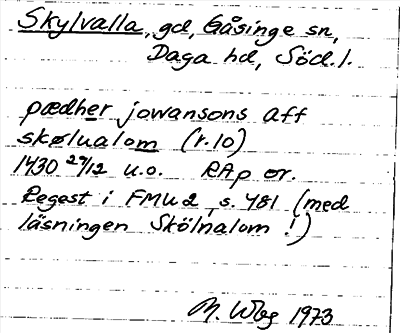 Skylvalla, gd, Gåsinge sn,
Daga hd, Söd.l.
pædher jowansons aff
skølualom (r.10)
1430 29/12 u.o. RAp or.
Regest i FMU 2, s. 481 (med
läsningen Skölnalom !)
M. Wbg 1973